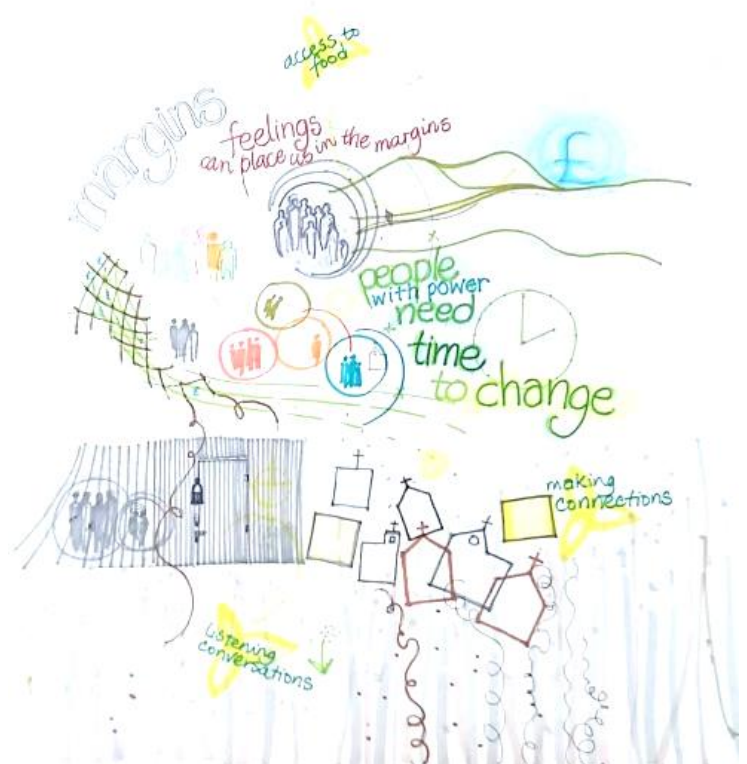 access to
food
margins
feelings
can place us in the margins
£
people
with power
need
time
to change
making
connections
Listening
conversations